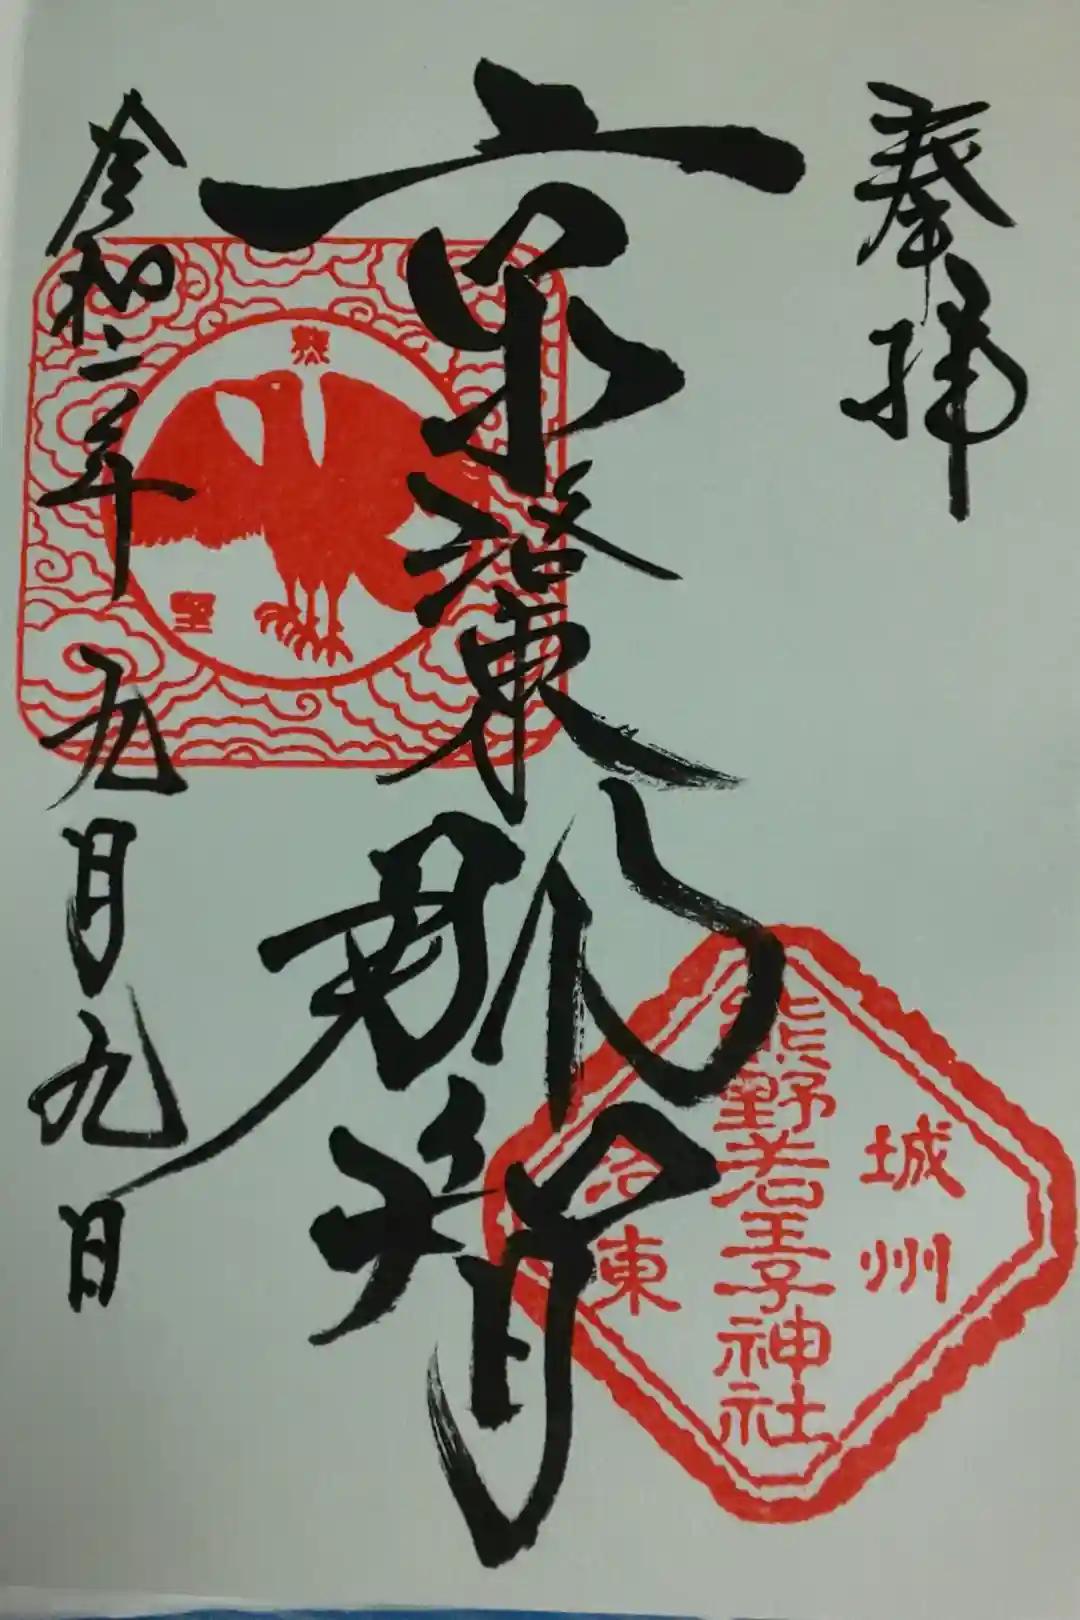 奉拝
京洛東那智
令和二年九月九日
熊
野
城州
熊野若王子神社
洛東